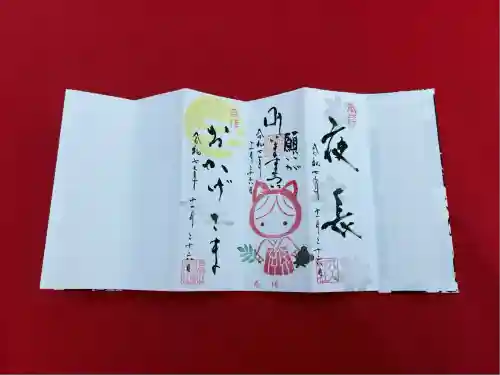 夜長
令和七年十一月二十六日
願いが
叶いますように
令和七年十一月二十六日
おかげさま
令和七年十一月二十六日